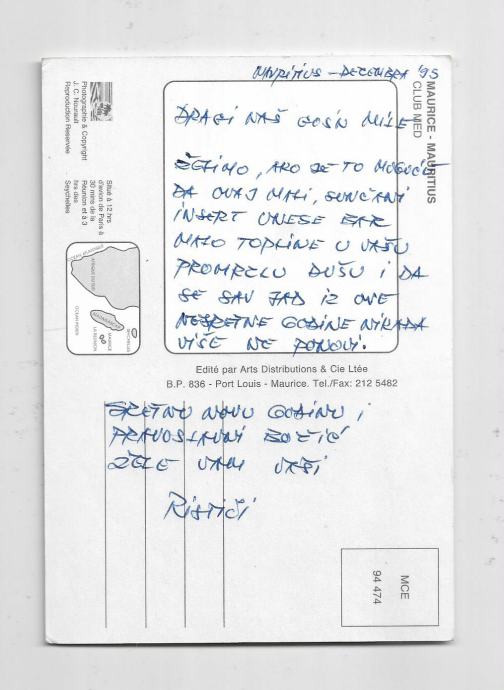 MAURITIUS - DECEMBRA '95
DRAGI NAŠ GOS'N MILE
ŽELIMO, AKO JE TO MOGUĆE
DA OVAJ MALI, SUNČANI
INSERT UNESE BAR
MALO TOPLINE U VAŠU
PROMRZLU DUŠU I DA
SE SAV JAD IZ OVE
NESRETNE GODINE NIKADA
VIŠE NE PONOVI.
Edité par Arts Distributions & Cie Ltée
B.P. 836 - Port Louis - Maurice. Tel./Fax: 212 5482
SRETNU NOVU GODINU I
PRAVOSLAVNI BOŽIĆ
ŽELE VAM VAŠI
RISTIĆI
MAURICE - MAURITIUS
CLUB MED
Photographie & Copyright
J. C. Nourault
Reproduction Réservée
Situé à 12 hrs
d'avion de Paris à
30 mins de la
Réunion et à 3
hrs des
Seychelles
OCEAN ATLANTIQUE
AFRIQUE DU SUD
MADAGASCAR
SEYCHELLES
MAURICE
LA REUNION
OCEAN INDIEN
MCE
94 474